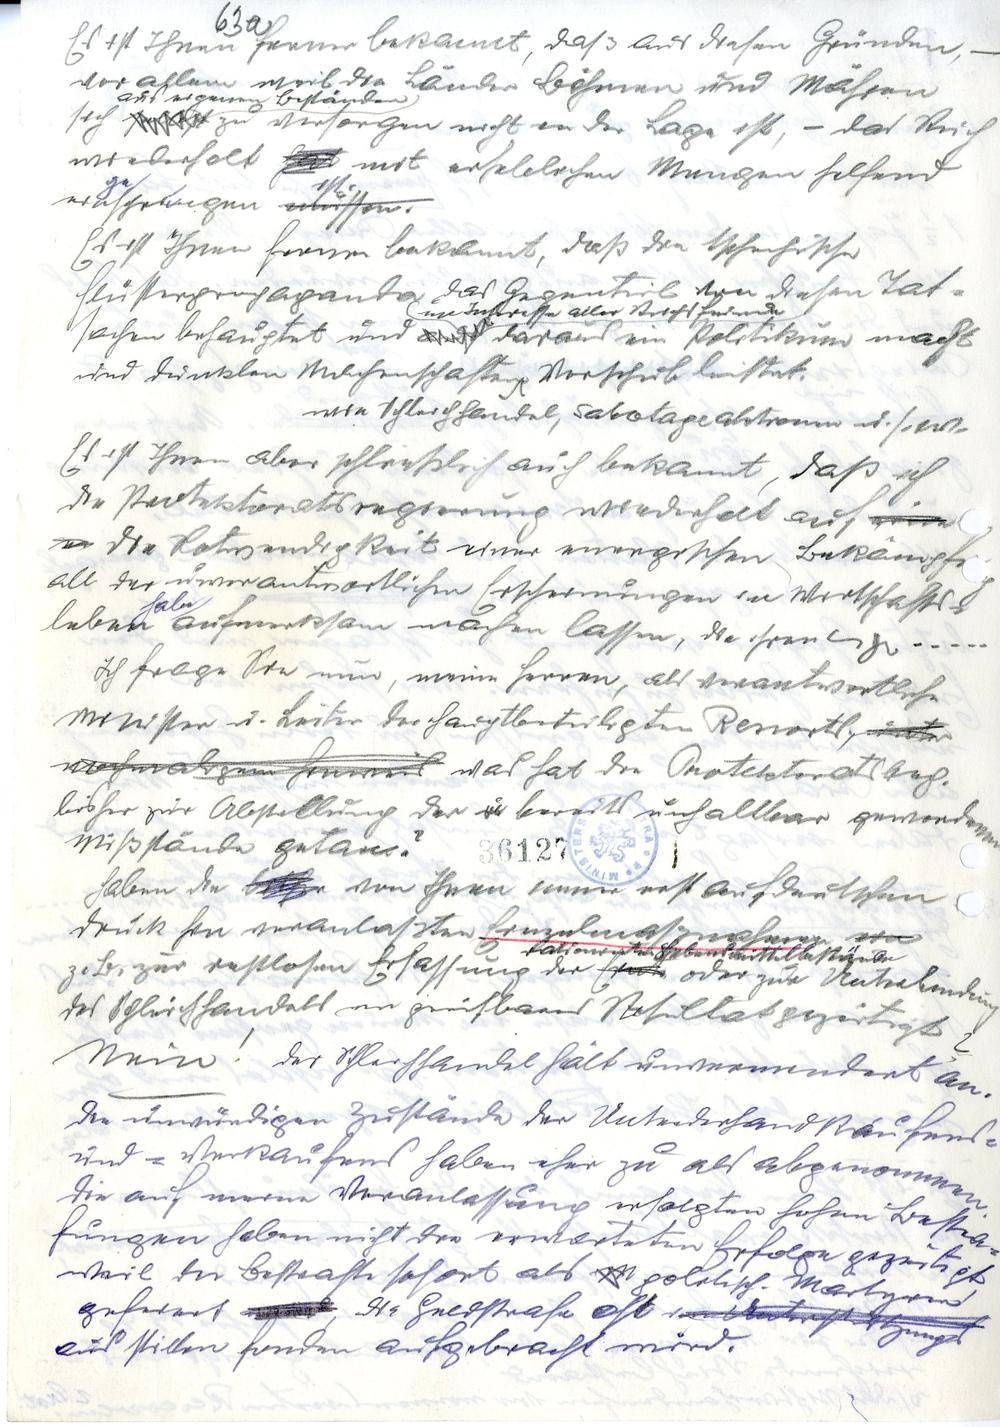 63a
Es ist Ihnen ferner bekannt, daß aus diesen Gründen, —
vor allem weil die Länder Böhmen und Mähren
aus eigenen Beständen
sich zu versorgen nicht in der Lage ist, – das Reich
wiederholt mit erheblichen Mengen helfend
eingesprungen ist.
Es ist Ihnen ferner bekannt, daß die tschechische
Flüsterpropaganda das Gegenteil von diesen Tat-
im Interesse aller Reichsfeinde
sachen behauptet und daraus ein Politikum macht
und dunklen Machenschaften Vorschub leistet.
wie Schleichhandel, Sabotageaktionen u.s.w.
Es ist Ihnen aber schließlich auch bekannt, daß ich
die Protektoratsregierung wiederholt auf
die Notwendigkeit einer energischen Bekämpfung
all der unverantwortlichen Erscheinungen im Wirtschafts-
leben habe aufmerksam machen lassen, die ihren
Ich frage Sie nun, meine Herren, als verantwortliche
Minister u. Leiter der hauptbeteiligten Ressorts,
was hat die Protektoratsreg.
bisher zur Abstellung der bereits unhaltbar gewordenen
Mißstände getan?
36127
haben die von Ihnen immer erst auf deutschen
Druck hin veranlaßten Einzelmaßnahmen
rationierten Lebensmittel
z.B. zur restlosen Erfassung der oder zur Unterbindung
des Schleichhandels ein greifbares Resultat gezeitigt?
Nein! der Schleichhandel hält unvermindert an.
die unwürdigen Zustände der Unterderhandkaufens-
und -verkaufens haben eher zu als abgenommen.
die auf meine Veranlassung erfolgten hohen Bestra-
fungen haben nicht die erwarteten Erfolge gezeitigt
weil der Bestrafte sofort als politisch. Märtyrer
gefeiert, die Geldstrafe oft
aus stillen Fonden aufgebracht wird.